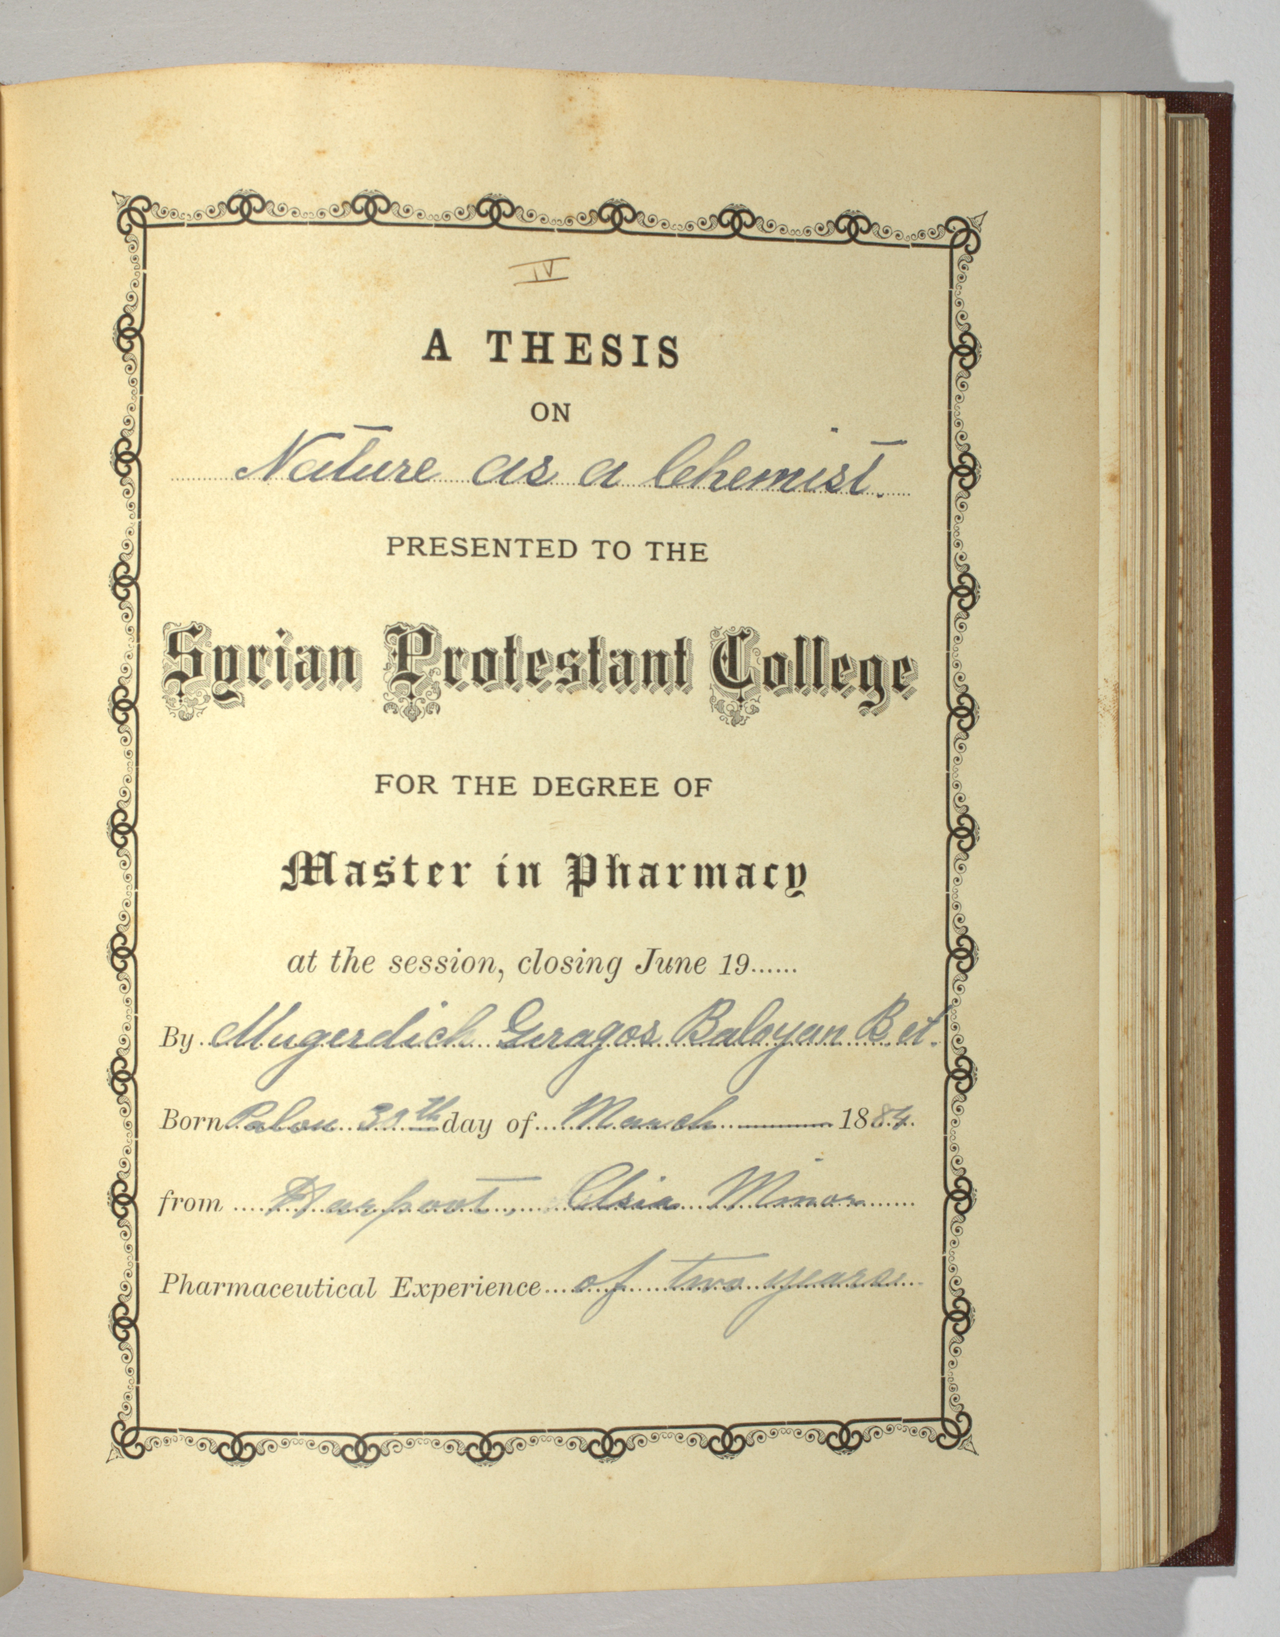 IV
A THESIS
ON
Nature as a Chemist.
PRESENTED TO THE
Syrian Protestant College
FOR THE DEGREE OF
Master in Pharmacy
at the session, closing June 19......
By Mugerdich Giragos Baloyan B.
Born Palou day of March 1884.
from Harpoot, Asia Minor
Pharmaceutical Experience of two years.